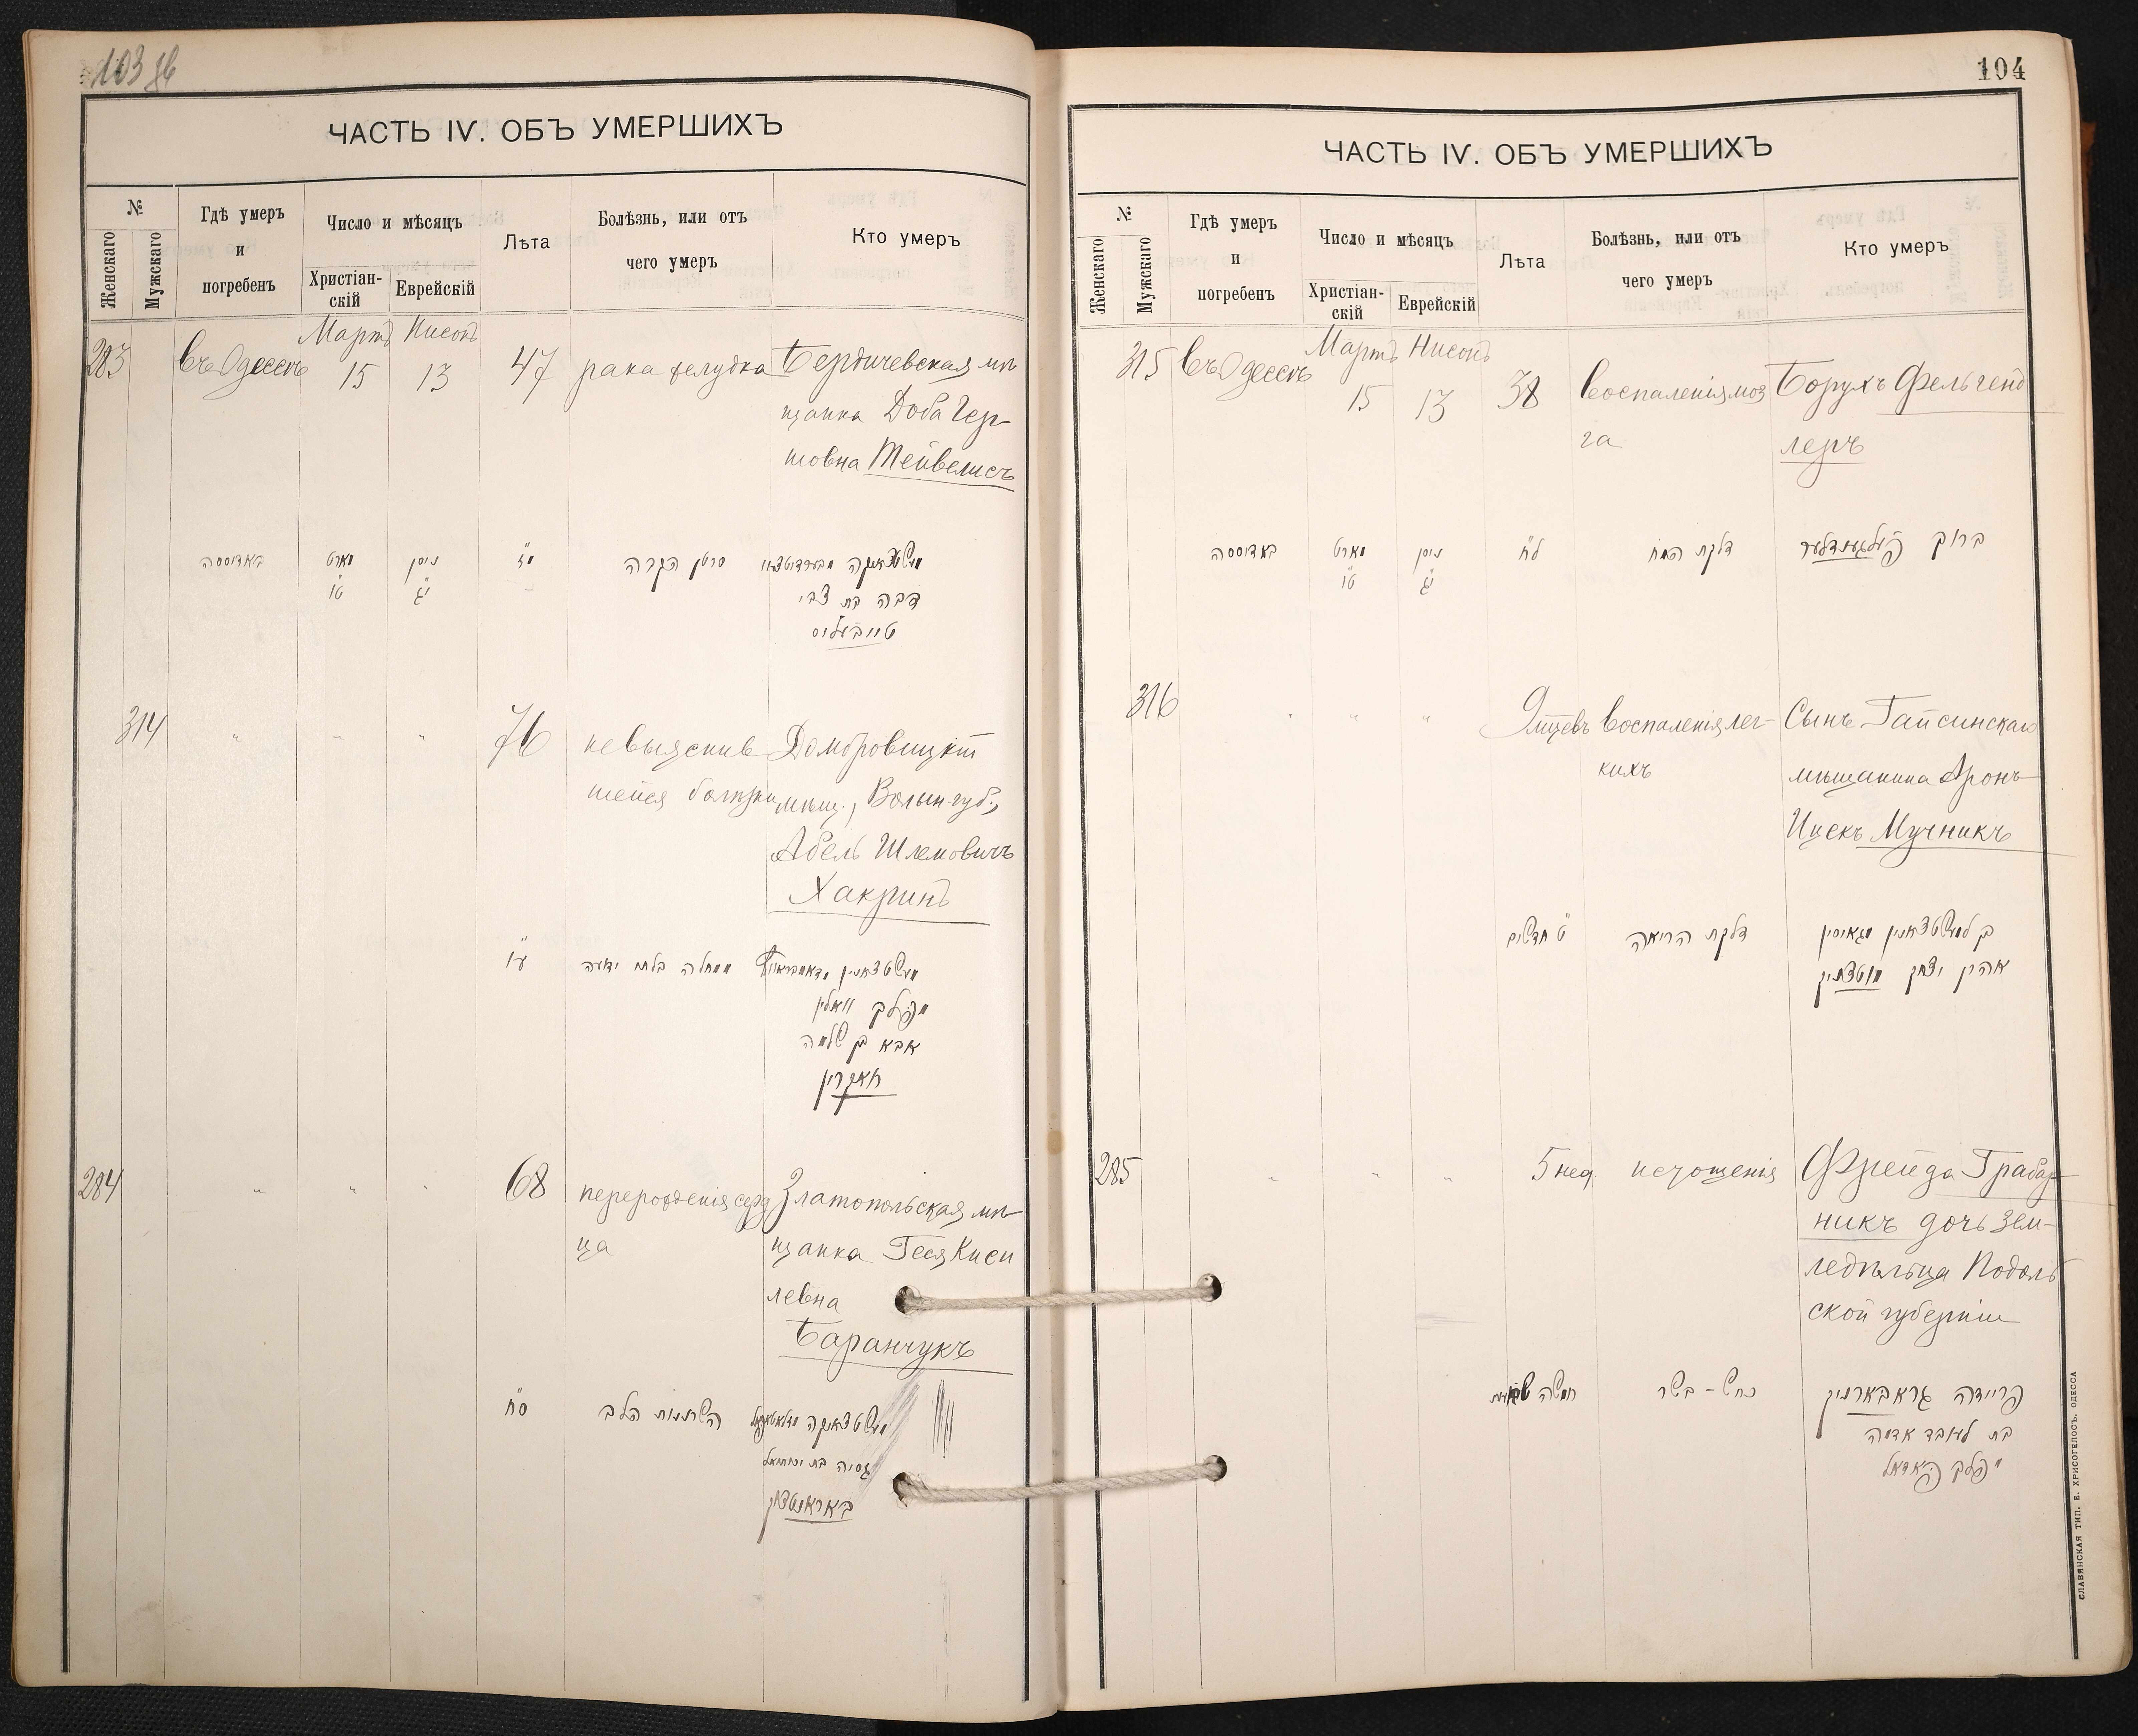 103 об
ЧАСТЬ IV. ОБЪ УМЕРШИХЪ
№
Женскаго
Мужскаго
Гдѣ умеръ
и
погребенъ
Число и мѣсяцъ
Христіан-
скій
Еврейскій
Лѣта
Болѣзнь, или отъ
чего умеръ
Кто умеръ
283
Въ Одессѣ
Мартъ
15
Нисонъ
13
47
рака желудка
Бердичевская мѣ
щанка Доба Гер-
шовна Тейвелисъ
באדוססה
מארט
ט״ו
ניסן
י״ג
מ״ז
סרטן הקבה
דבה בת צבי
טייבעליס
314
"
"
"
76
невыяснив
шейся болѣзни
Домбровицкій
мѣщ., Волын. губ.,
Абель Шлемовичъ
Хакринъ
ע״ו
ממחלה בלתי ידועה
מפלך וואלין
אבא בן שלמה
חאקרין
284
"
"
"
68
перерожденія серд
ца
Златопольская мѣ-
щанка Геся Киси
левна
Баранчукъ
ס״ח
השתנות הלב
באראנטצוק
104
ЧАСТЬ IV. ОБЪ УМЕРШИХЪ
№
Женскаго
Мужскаго
Гдѣ умеръ
и
погребенъ
Число и мѣсяцъ
Христіан-
скій
Еврейскій
Лѣта
Болѣзнь, или отъ
чего умеръ
Кто умеръ
315
Въ Одессѣ
Мартъ
15
Нисонъ
13
38
Воспаленія моз
га
Борухъ Фельгенд
леръ
באדוססה
מארט
ט״ו
ניסן
י״ג
ל״ח
דלקת המח
ברוך פעלגענדלער
316
"
"
"
9 мцевъ
Воспаленія лег-
кихъ
Сынъ Гайсинскаго
мѣщанина Аронъ
Ицекъ Мучникъ
ט׳ חדשים
דלקת הריאה
בן למעשטצאנין מגאיסין
אהרן יצחק מוטצניק
285
"
"
"
5 нед.
истощенія
Фрейда Грабар
никъ дочь зем-
ледѣльца Подоль
ской губерніи
חמשה
כחש - בשר
פריידה גראבארניק
בת לעובד אדמה
מפלך פאדאל
СЛАВЯНСКАЯ ТИП. Е. ХРИСОГЕЛОСЪ. ОДЕССА